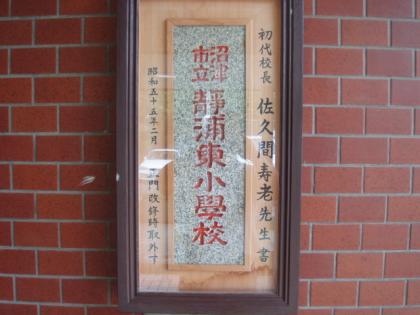 初代校長 佐久間寿老先生書
沼津
市立
靜浦東小學校
昭和五十五年二月 門改修時取外す